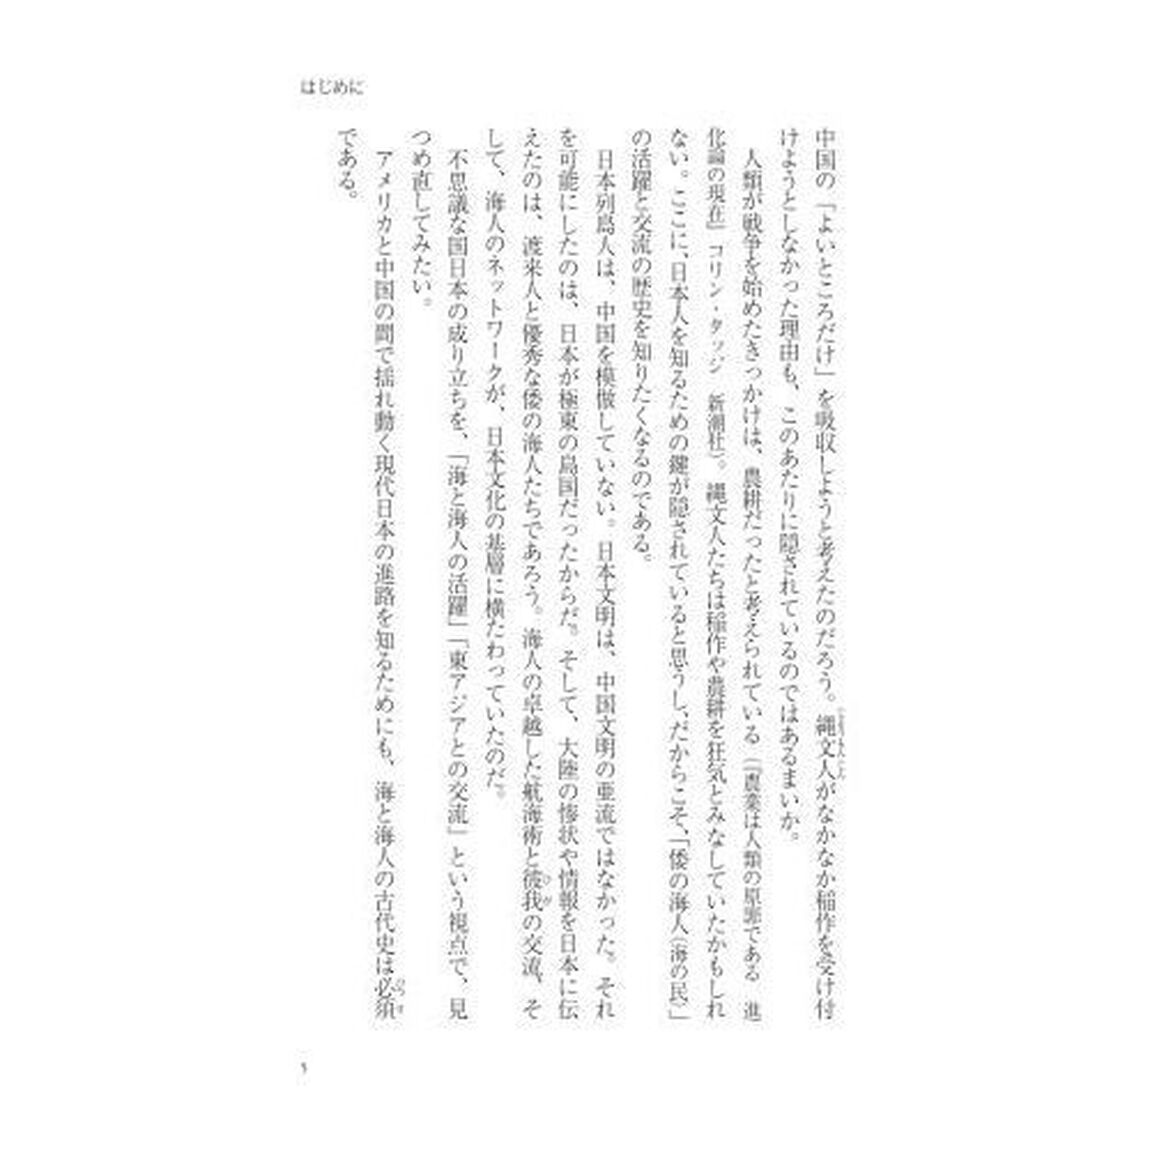 はじめに
中国の「よいところだけ」を吸収しようと考えたのだろう。縄文人がなかなか稲作を受け付
けようとしなかった理由も、このあたりに隠されているのではあるまいか。
人類が戦争を始めたきっかけは、農耕だったと考えられている（『農業は人類の原罪である　進
化論の現在』コリン・タッジ　新潮社）。縄文人たちは稲作や農耕を狂気とみなしていたかもしれ
ない。ここに、日本人を知るための鍵が隠されていると思うし、だからこそ、「倭の海人（海の民）」
の活躍と交流の歴史を知りたくなるのである。
日本列島人は、中国を模倣していない。日本文明は、中国文明の亜流ではなかった。それ
を可能にしたのは、日本が極東の島国だったからだ。そして、大陸の惨状や情報を日本に伝
えたのは、渡来人と優秀な倭の海人たちであろう。海人の卓越した航海術と彼我の交流、そ
して、海人のネットワークが、日本文化の基層に横たわっていたのだ。
不思議な国日本の成り立ちを、「海と海人の活躍」「東アジアとの交流」という視点で、見
つめ直してみたい。
アメリカと中国の間で揺れ動く現代日本の進路を知るためにも、海と海人の古代史は必須
である。
5